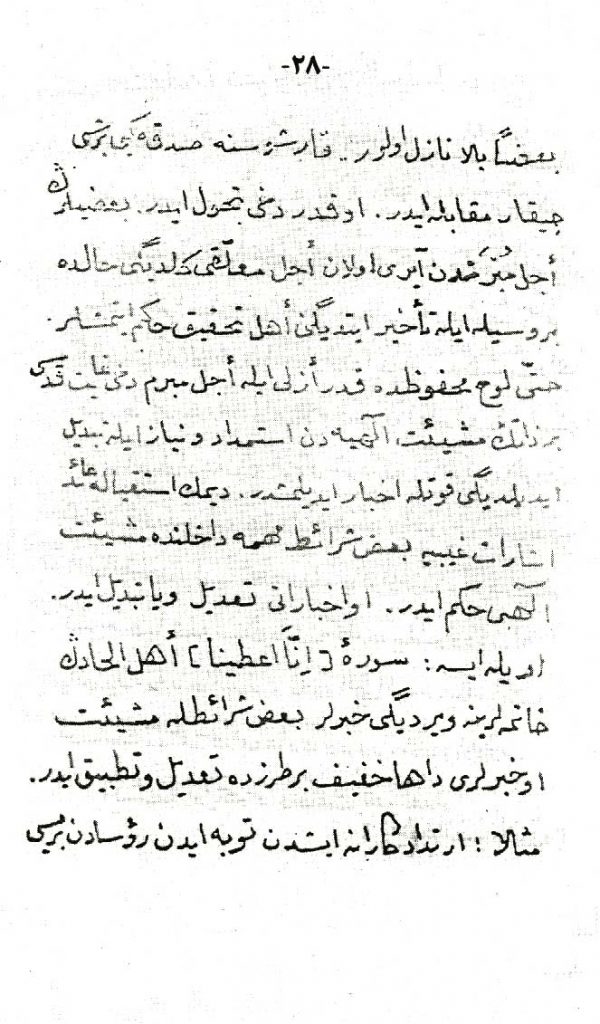 -٢٨-
بعضًا بلا نازل اولور. قارشوسنه صدقه كبى برشى
چيقار مقابله ايدر. او قدر دخى تحول ايدر. بعضيلرڭ
أجل مُبْرَمْدن آيرى اولان أجل معلّقى كلديگى حالده
بر وسيله ايله تأخير ايتديگى أهل تحقيق حكم ايتمشلر.
حتّى لوح محفوظده قدر أزلى ايله أجل مبرم دخى غايت قدسى
بر ذاتڭ مشيئت الٓهيه دن استمداد و نياز ايله تبديل
ايديلديگى قوتله اخبار ايديلمشدر. ديمك استقباله عائد
اشارات غيبيه بعض شرائط مهمه داخلنده مشيئت
الٓهى حكم ايدر. او اخباراتى تعديل ويا تبديل ايدر.
اويله ايسه: سورۀ [اِنَّا اعطينا] أهل الحادڭ
خاتمه لرينه ويرديگى خبرلر بعض شرائطله مشيئت
او خبرلرى داها خفيف بر طرزده تعديل و تطبيق ايدر.
مثلا: ارتدادكارانه ايشدن توبه ايدن رؤسادن بريسى